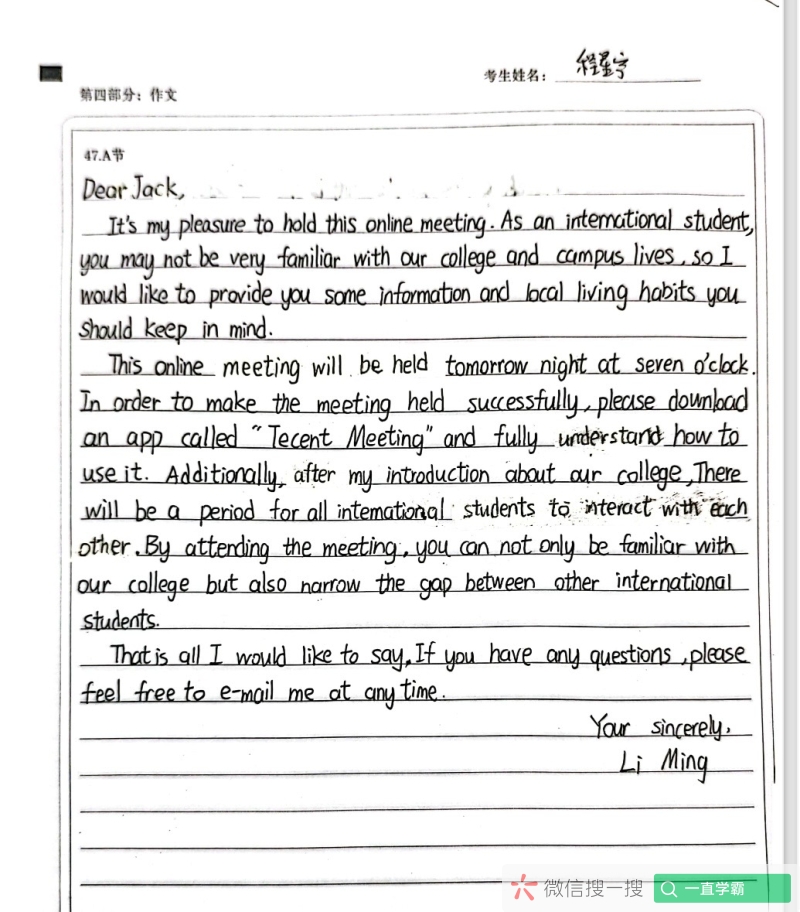 考生姓名：程星宇
第四部分：作文
47.A节
Dear Jack,
It's my pleasure to hold this online meeting. As an international student,
you may not be very familiar with our college and campus lives, so I
would like to provide you some information and local living habits you
should keep in mind.
This online meeting will be held tomorrow night at seven o'clock.
In order to make the meeting held successfully, please download
an app called "Tecent Meeting" and fully understand how to
use it. Additionally, after my introduction about our college, There
will be a period for all international students to interact with each
other. By attending the meeting, you can not only be familiar with
our college but also narrow the gap between other international
students.
That is all I would like to say, If you have any questions, please
feel free to e-mail me at any time.
Your sincerely,
Li Ming
微信搜一搜 一直学霸